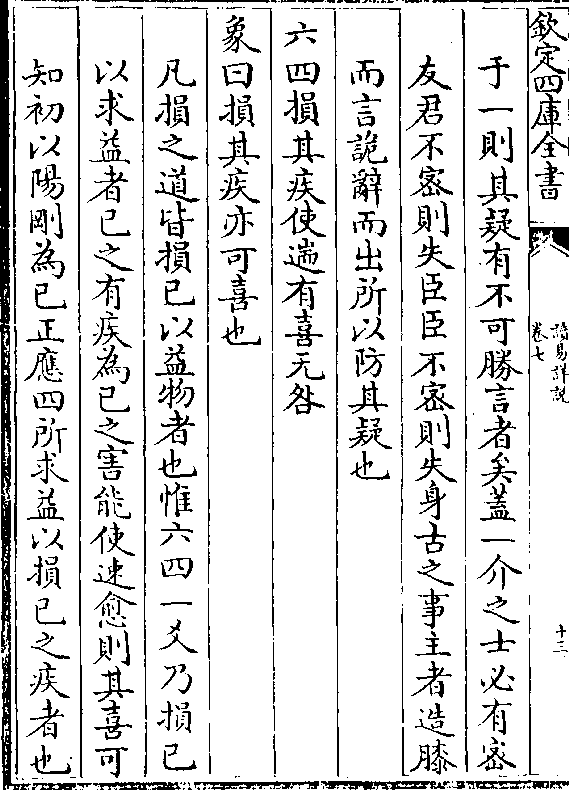 欽定四庫全書
讀易詳說
卷七
十三
于一則其疑有不可勝言者矣蓋一介之士必有密
友君不密則失臣臣不密則失身古之事主者造膝
而言詭辭而出所以防其疑也
六四損其疾使遄有喜无咎
象曰損其疾亦可喜也
凡損之道皆損已以益物者也惟六四一爻乃損已
以求益者已之有疾為已之害能使速愈則其喜可
知初以陽剛為已正應四所求益以損已之疾者也